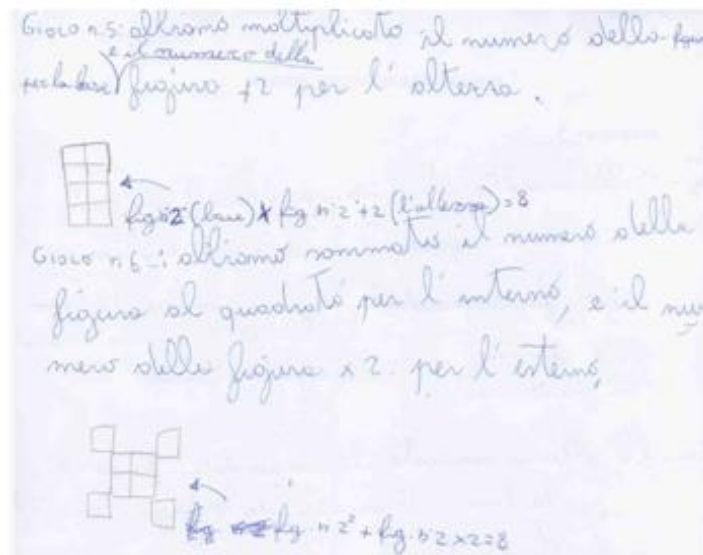 Gioco n.5: abbiamo moltiplicato il numero della figura
e il numero della
per la base figura +2 per l'altezza.
fig n°2 (base) x fig n°2 + 2 (l'altezza) = 8
Gioco n.6: abbiamo sommato il numero della
figura al quadrato per l'interno, e il nu-
mero della figura x 2 per l'esterno,
fig. n°2² + fig. n°2 x 2 = 8